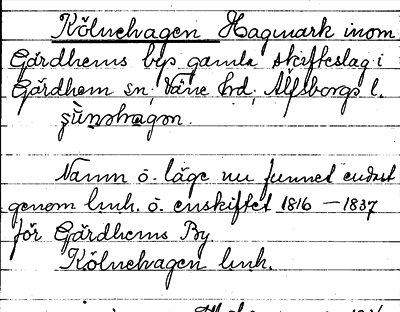 Kölnehagen Hagmark inom
Gärdhems bys gamla skifteslag i
Gärdhem sn, Väne hd, Älfsborgs l.
Namn o. läge nu funnet endast
genom lmh. o. enskiftet 1816 – 1837
för Gärdhems By.
Kölnehagen lmh.